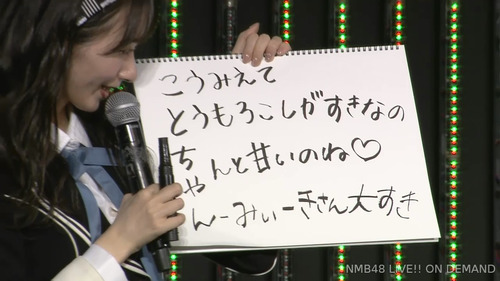 こうみえて
とうもろこしがすきなの
ちゃんと甘いのね♡
んーみぃーきさん大すき
NMB48 LIVE!! ON DEMAND